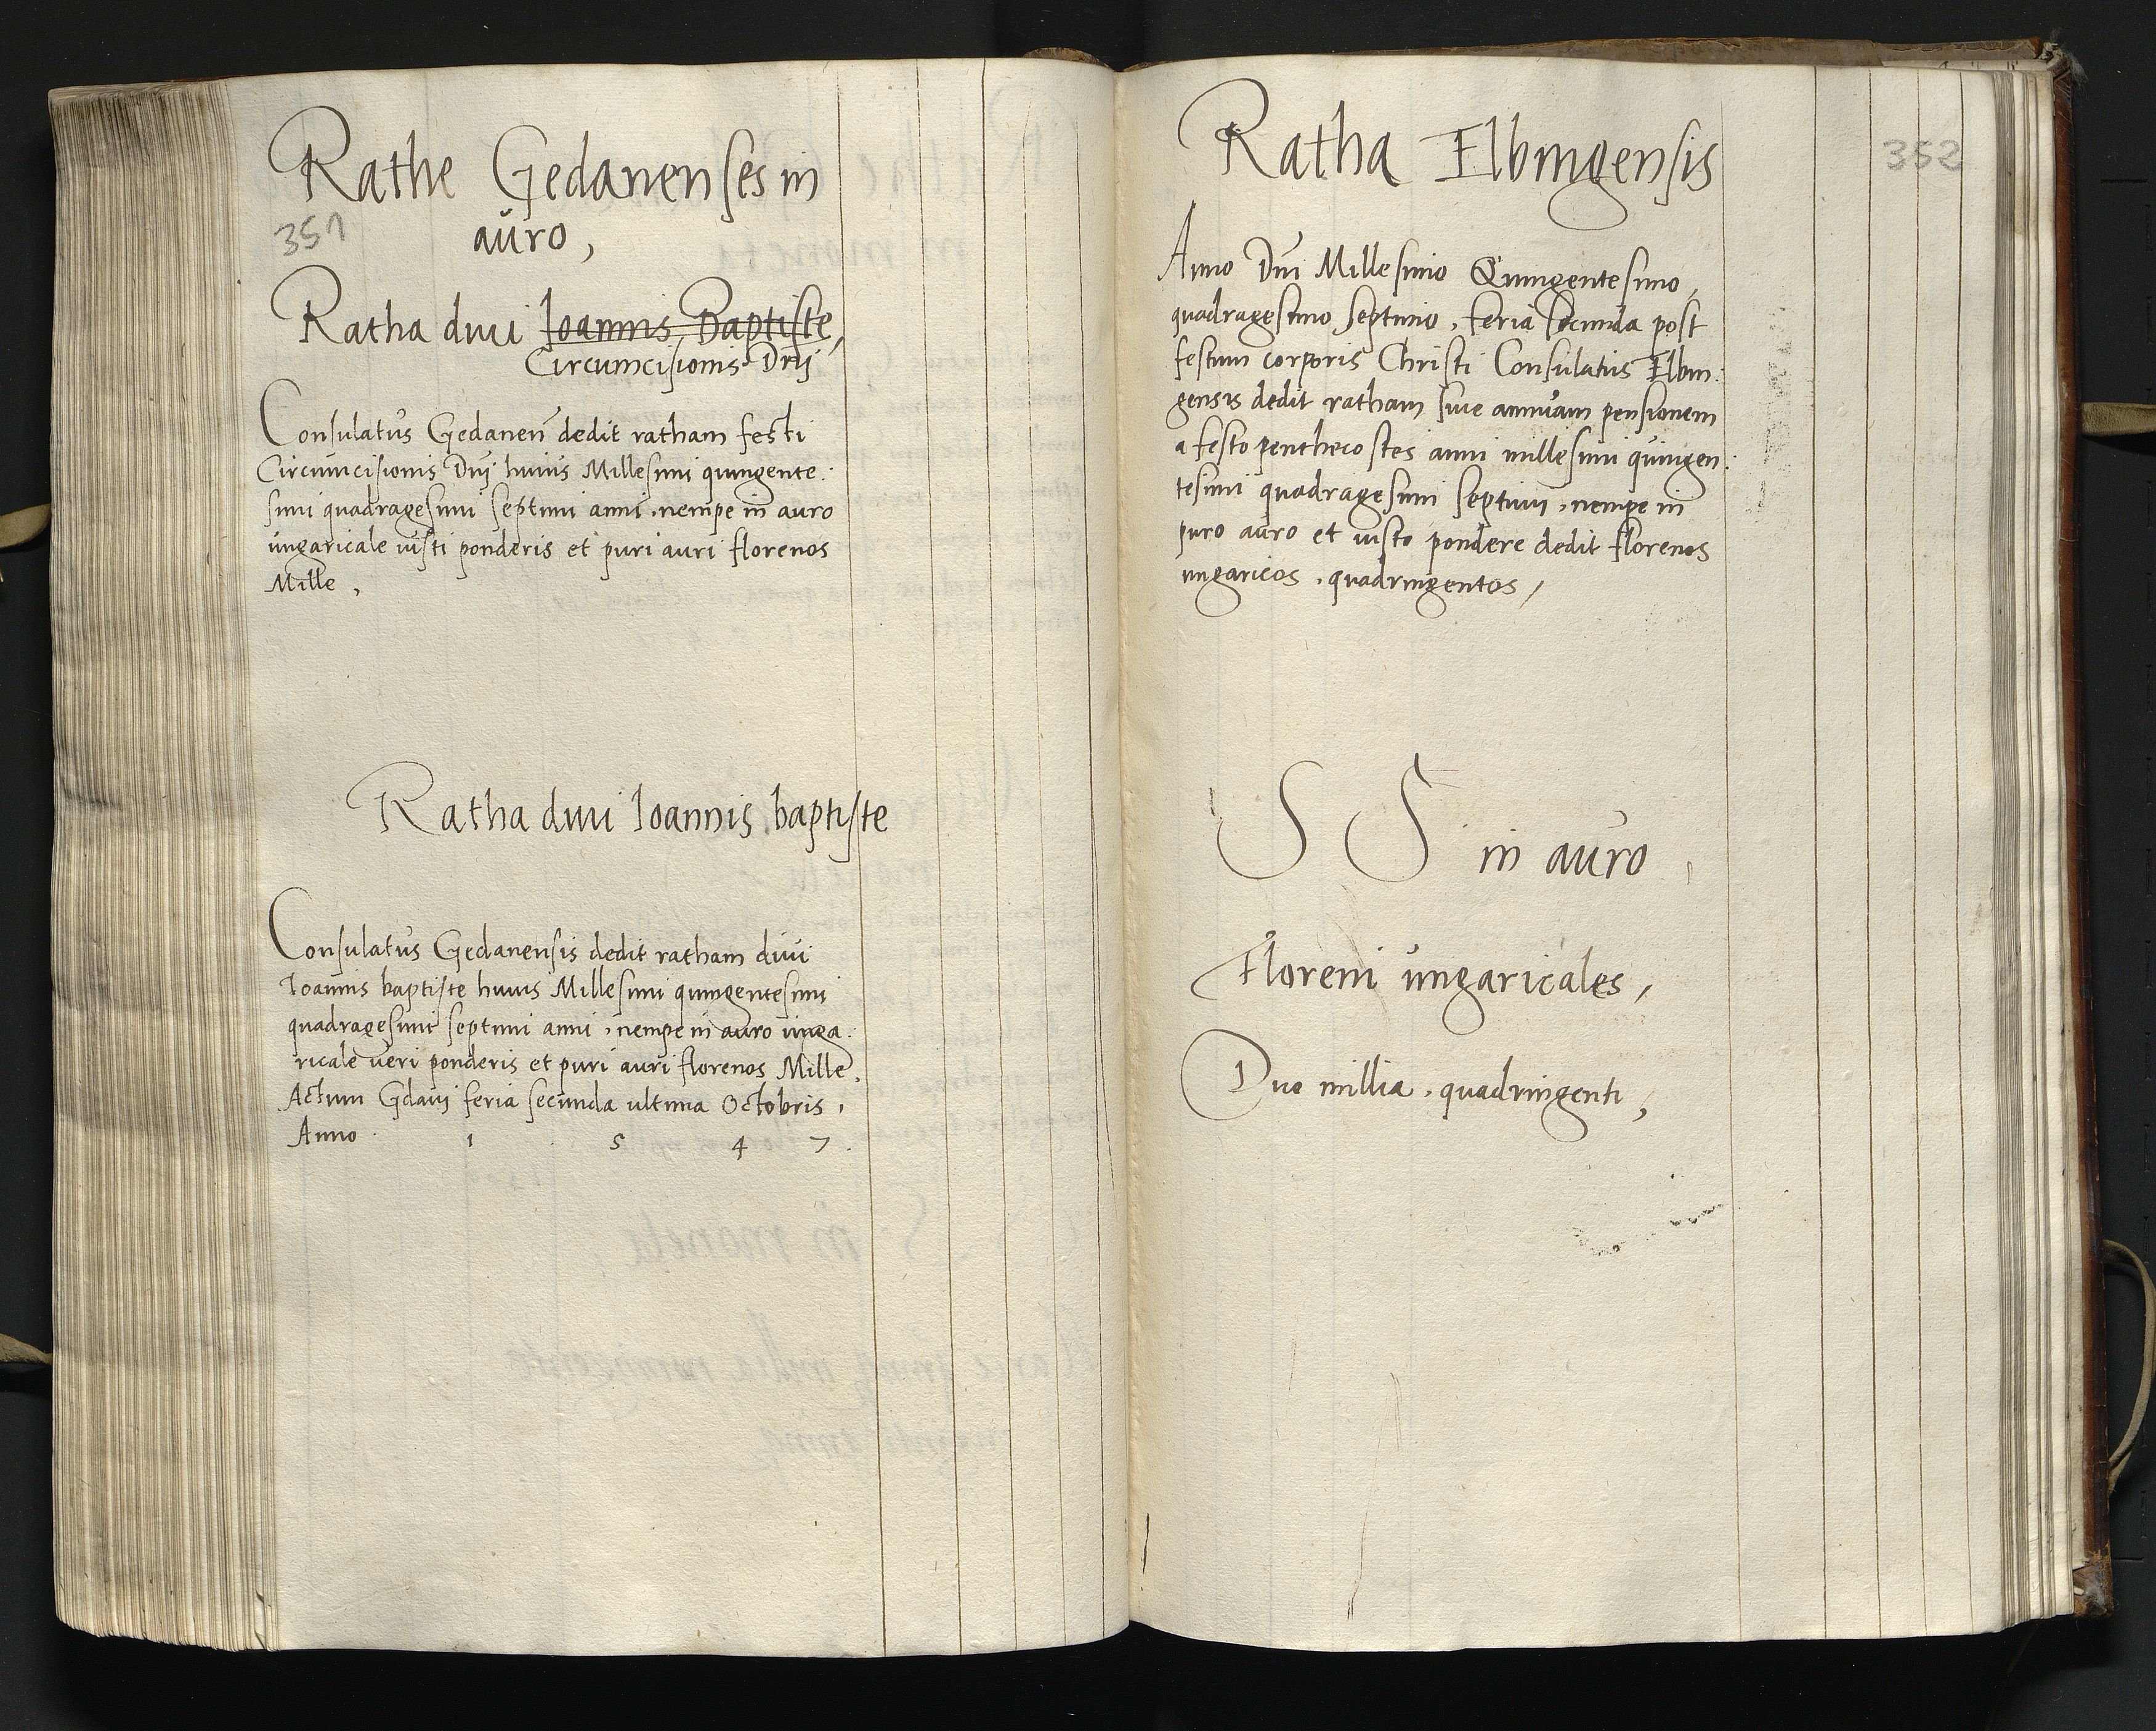 Rathe Gedanenses in
351
auro,
Ratha divi Ioannis Baptiste,
Circumcisionis Dnj
Consulatus Gedanen dedit ratham festi
Circumcisionis Dnj huius Millesimi quingente:
simi quadragesimi septimi anni, nempe in auro
ungaricale iusti ponderis et puri auri florenos
Mille,
Ratha divi Ioannis baptiste
Consulatus Gedanensis dedit ratham divi
Ioannis baptiste huius Millesimi quingentesimi
quadragesimi septimi anni, nempe in auro unga:
ricale veri ponderis et puri auri florenos Mille,
Actum Gdani feria secunda ultima Octobris,
Anno 1 5 4 7.
Ratha Elbingensis
352
Anno Dni Millesimo Quingentesimo,
quadragesimo septimo, feria secunda post
festum corporis Christi Consulatus Elbin:
gensis dedit ratham sive annuam pensionem
a festo penthecostes anni millesimi quingen:
tesimi quadragesimi septimi, nempe in
puro auro et iusto pondere dedit florenos
ungaricos, quadringentos,
S S in auro,
Floreni ungaricales,
Duo millia, quadringenti,